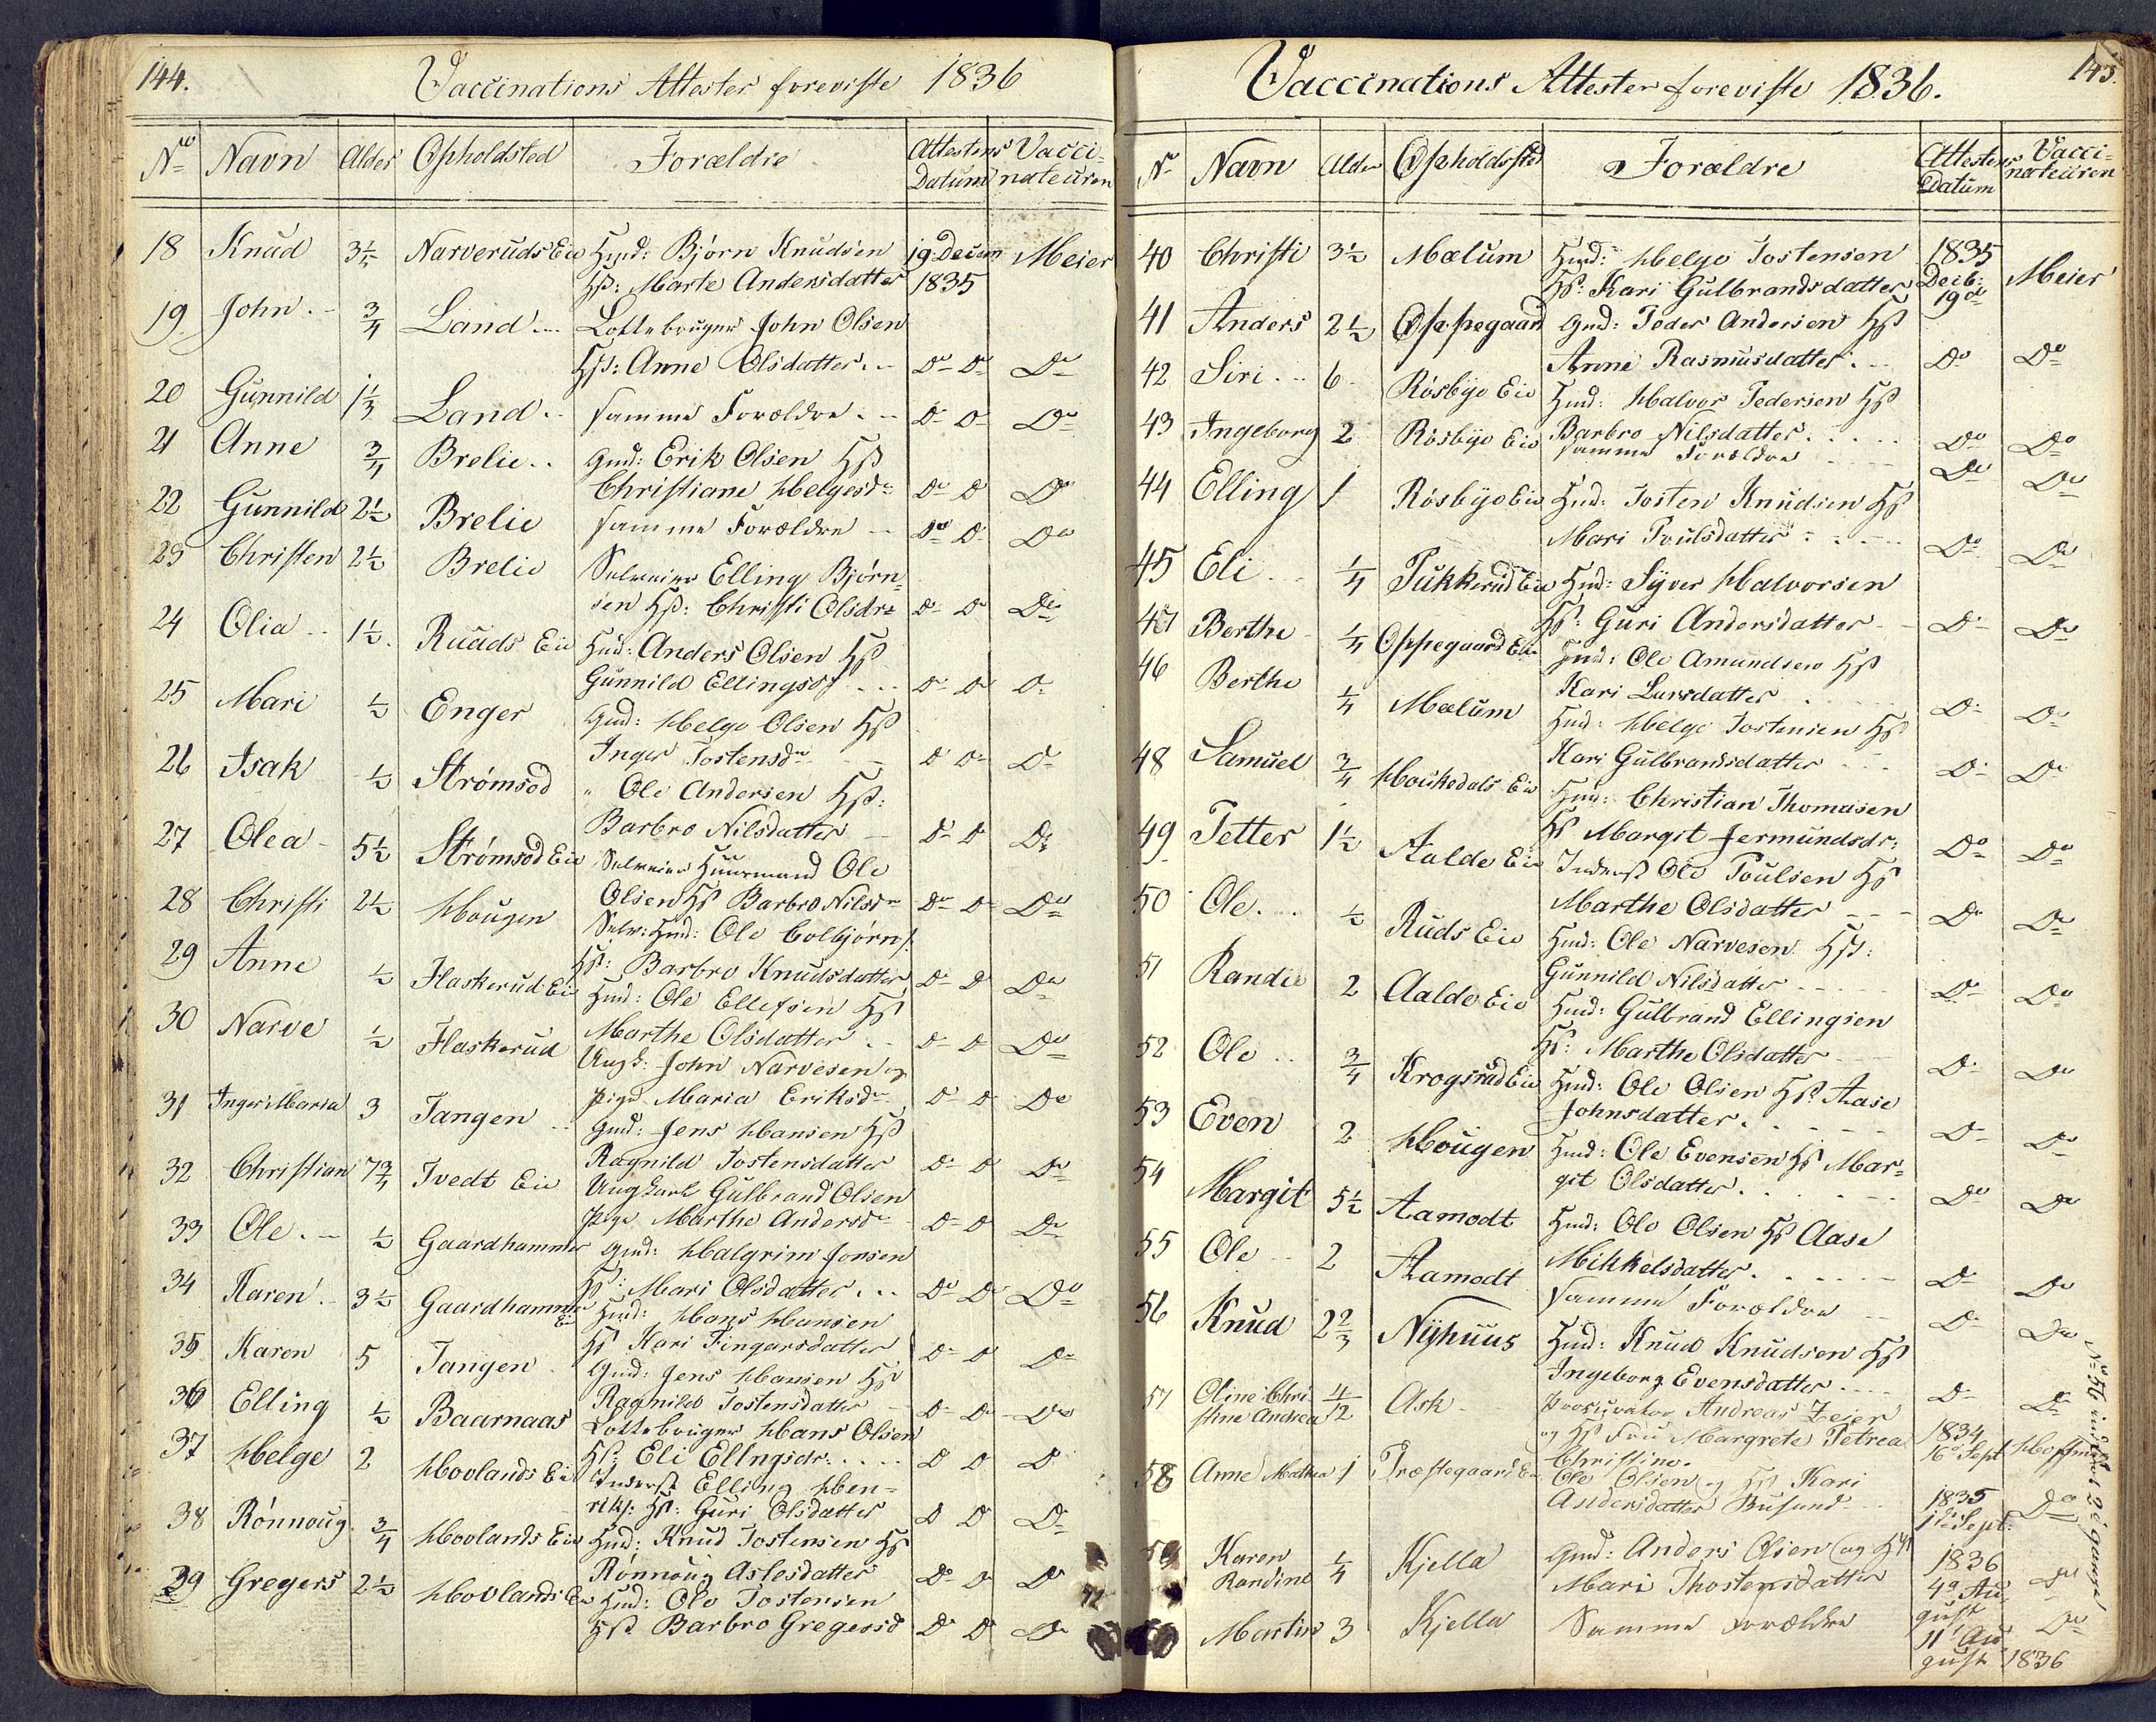 144.
Vaccinations Attester foreviste 1836
No Navn Alder Opholdsted Forældre Attestens Datum Vaccinateuren
18 Knud 3½ Narveruds Eie Hmd: Bjørn Knudsen 19 Decem Meier
Hst: Marte Andersdatter 1835
19 John 3/4 Land Lottebruger John Olsen
Hst: Anne Olsdatter Do Do Do
20 Gunnild 1 1/3 Land samme Forældre Do Do Do
21 Anne 3/4 Brelie Gmd: Erik Olsen Hst
Christiane Helgesdr Do Do Do
22 Gunnild 2½ Brelie samme Forældre Do Do Do
23 Christen 2½ Brelie Selveier Elling Bjørn=
sen Hst: Christi Olsdr Do Do Do
24 Olia 1½ Ruuds Eie Hmd: Anders Olsen Hst
Gunnild Ellingsdr Do Do Do
25 Mari ½ Enger Gmd: Helge Olsen Hst
Inger Tostensdr Do Do Do
26 Isak ½ Strømsod " Ole Andersen Hst:
Barbro Nilsdatter Do Do Do
27 Olea 5½ Strømsod Eie Selveier Huusmand Ole
Olsen Hst Barbro Nilsdr Do Do Do
28 Christi 2½ Hougen Selv: Hmd: Ole Colbjørns.
Hst: Barbro Knudsdatter Do Do Do
29 Anne ½ Flaskerud Eie Hmd: Ole Ellefsen Hst
Marthe Olsdatter Do Do Do
30 Narve ½ Flaskerud Ungk: John Narvesen og
pige Maria Eriksdr Do Do Do
31 Inger Maria 3 Tangen Gmd: Jens Hansen Hst
Ragnild Tostensdatter Do Do Do
32 Christian 7 3/4 Tvedt Eie Ungkarl Gulbrand Olsen
Pige Marthe Andersdr Do Do Do
33 Ole ½ Gaardhammer Gmd: Halgrim Jonsen
Hst: Mari Olsdatter Do Do Do
34 Karen 3½ Gaardhammer Eie Hmd: Hans Hansen
Hst Kari Fingarsdatter Do Do Do
35 Karen 5 Tangen Gmd: Jens Hansen Hst
Ragnild Tostensdatter Do Do Do
36 Elling ½ Baarnaas Lottebruger Hans Olsen
Hst: Eli Ellngsdr Do Do Do
37 Helge 2 Hovlands Eie Inderst Elling Hen=
riks: Hst: Guri Olsdatter Do Do Do
38 Rønnoug 3/4 Hovlands Eie Hmd: Knud Tostensen Hst
Rønnoug Aslesdatter Do Do Do
39 Gregers 2½ Hovlands Eie Hmd: Ole Tostensen
Hst Barbro Gregersd Do Do Do
145.
Vaccinations Attester foreviste 1836.
No Navn Alder Opholdsted Forældre Attestens Datum Vaccinateuren
40 Christi 3½ Mælum Hmd: Helge Tostensen 1835
Hst: Kari Gulbrandsdatter Decb: 19de Meier
41 Anders 2½ Oppegaard Gmd: Peder Andersen Hst
Anne Rasmusdatter Do Do
42 Siri 6 Røsbye Eie Hmd: Halvor Pedersen Hst
Barbro Nilsdatter Do Do
43 Ingeborg 2 Røsbye Eie samme Forældre Do Do
44 Elling 1 Røsbye Eie Hmd: Tosten Knudsen Hst
Mari Poulsdatter Do Do
45 Eli 1/4 Pukkerud Eie Hmd: Syver Halvorsen
Hst: Guri Andersdatter Do Do
47 Berthe 1/4 Oppegaard Eie Hmd: Ole Amundsen Hst
Kari Larsdatter Do Do
46 Berthe 1/4 Mælum Hmd: Helge Tostensen Hst
Kari Gulbrandsdatter Do Do
48 Samuel 3/4 Houkedals Eie Hmd: Christian Thomasen
Hst Margit Jermundsdr: Do Do
49 Petter 1½ Aalde Eie Inderst Ole Poulsen Hst
Marthe Olsdatter Do Do
50 Ole ½ Ruds Eie Hmd: Ole Narvesen Hst:
Gunnild Nilsdatter Do Do
51 Randie 2 Aalde Eie Hmd: Gulbrand Ellingsen
Hst: Marthe Olsdatter Do Do
52 Ole 3/4 Krogsrud Eie Hmd: Ole Olsen Hst: Aase
Johnsdatter Do Do
53 Even 2 Hougen Hmd: Ole Evensen Hst Mar=
git Olsdatter Do Do
54 Margit 5½ Aamodt Hmd: Ole Olsen Hst Aase
Mikkelsdatter Do Do
55 Ole 2 Aamodt samme Forældre Do Do
56 Knud 2 2/3 Nyhuus Hmd: Knud Knudsen Hst
Ingeborg Evensdatter Do Do
57 Oline Chri= 4/12 Ask Procurator Andreas Zeier
stine Andrea og Hst Frue Margrete Petrea 1834
Christine. 16de Sept Hoffman
58 Anne Mathea 1 Præstegaards Eie Ole Olsen og Hst Kari
Andersdatter Busund 1835 1ste Sept: Do
59 Karen Randine 1/4 Kjella Gmd: Anders Olsen og Hst
Mari Thostensdatter 1836 4de August Do
Martin 3 Kjella Samme Forældre 11 August 1836 Do